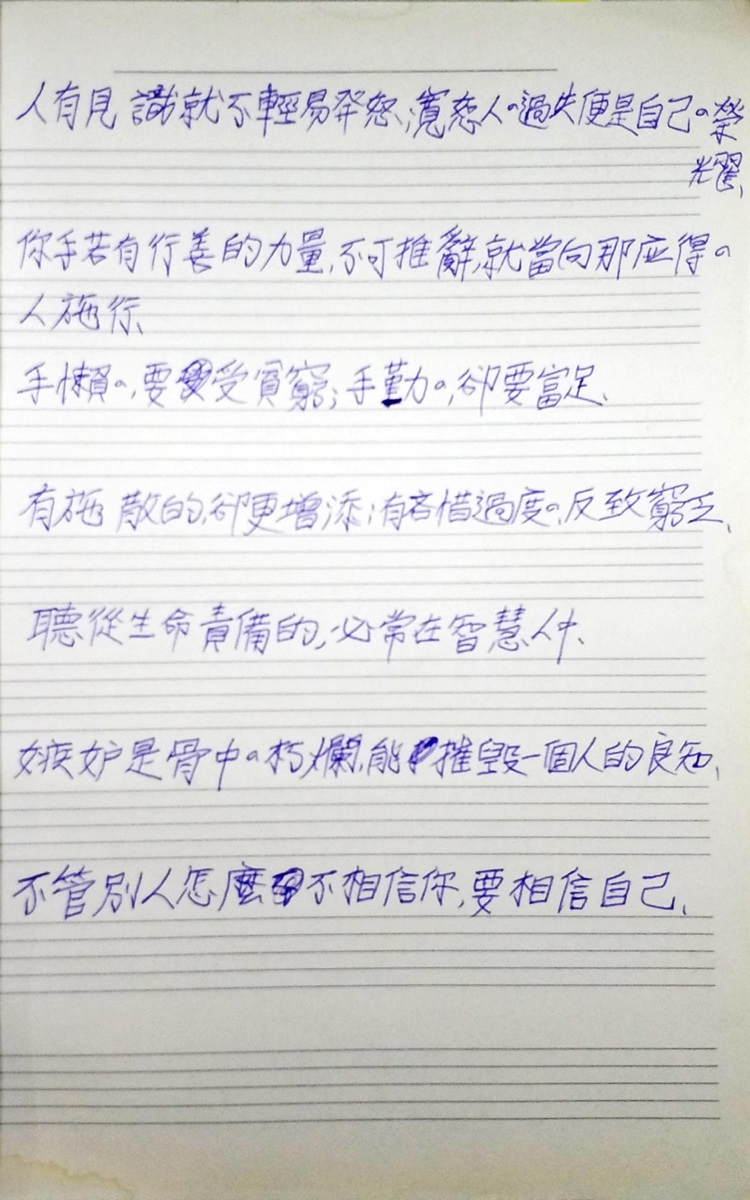 人有見識就不輕易發怒;寬恕人の過失便是自己の榮
光耀、
你手若有行善的力量,不可推辭,就當向那应得の
人施行、
手懶の,要受貧窮;手勤の,卻要富足、
有施散的,卻更增添;有吝惜過度の,反致窮乏、
聽從生命責備的,必常在智慧人中、
嫉妒是骨中の朽爛,能摧毀一個人的良知、
不管別人怎麼不相信你,要相信自己、